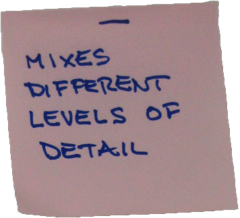 MIXES
DIFFERENT
LEVELS OF
DETAIL